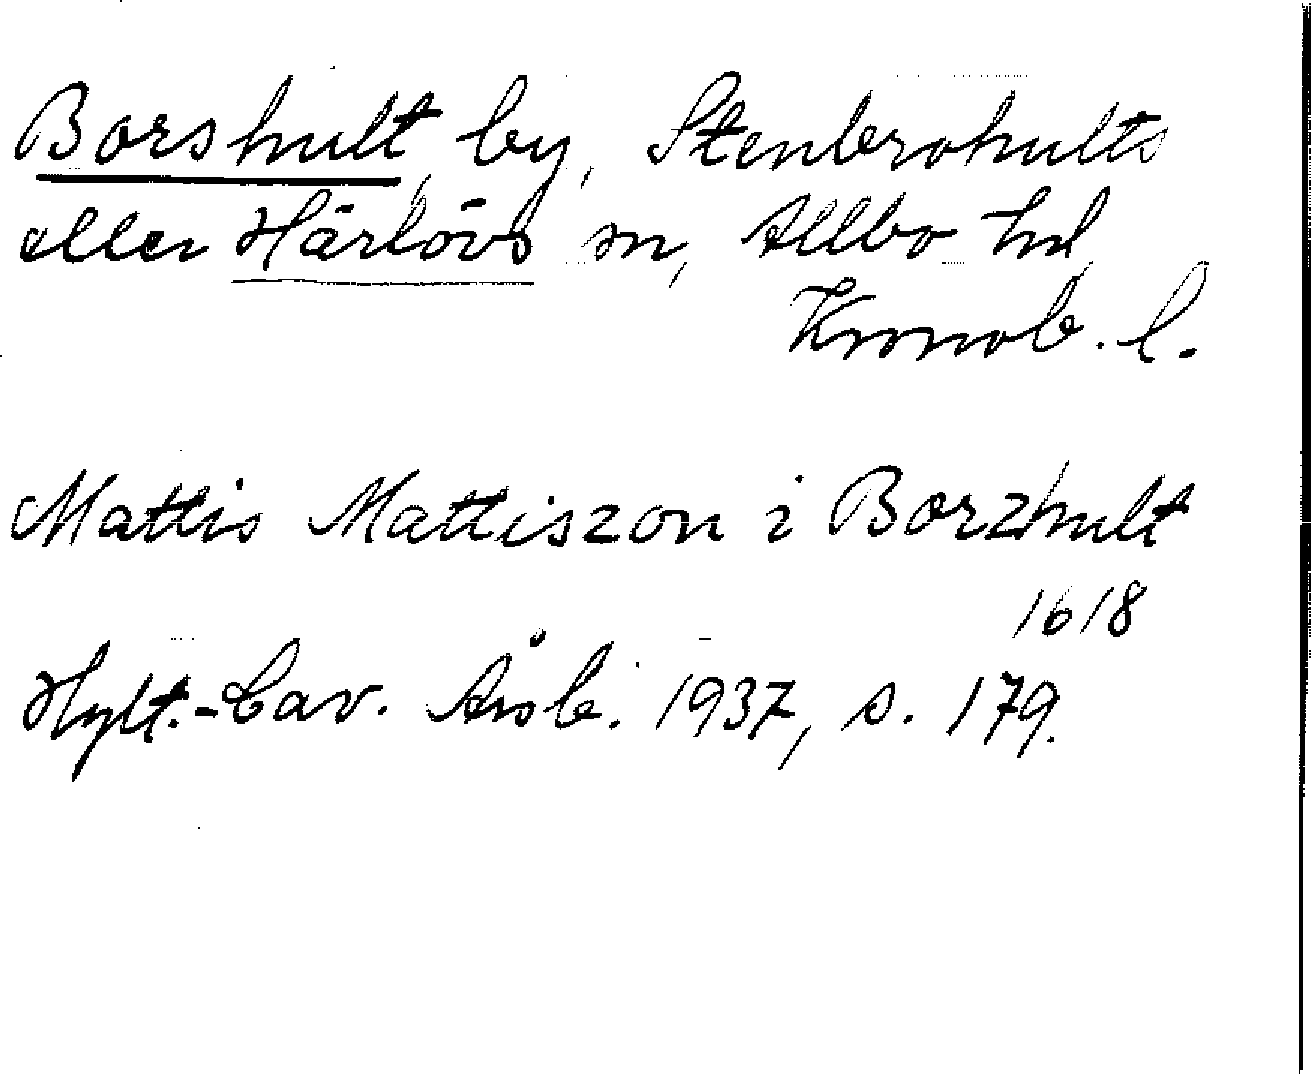 Borshult, by, Stenbrohults
eller Härlövs sn, Allbo hd
Kronob. l.
Mattis Mattiszon i Borzhult
1618
Hylt.-Cav. Årsb. 1937, s. 179.